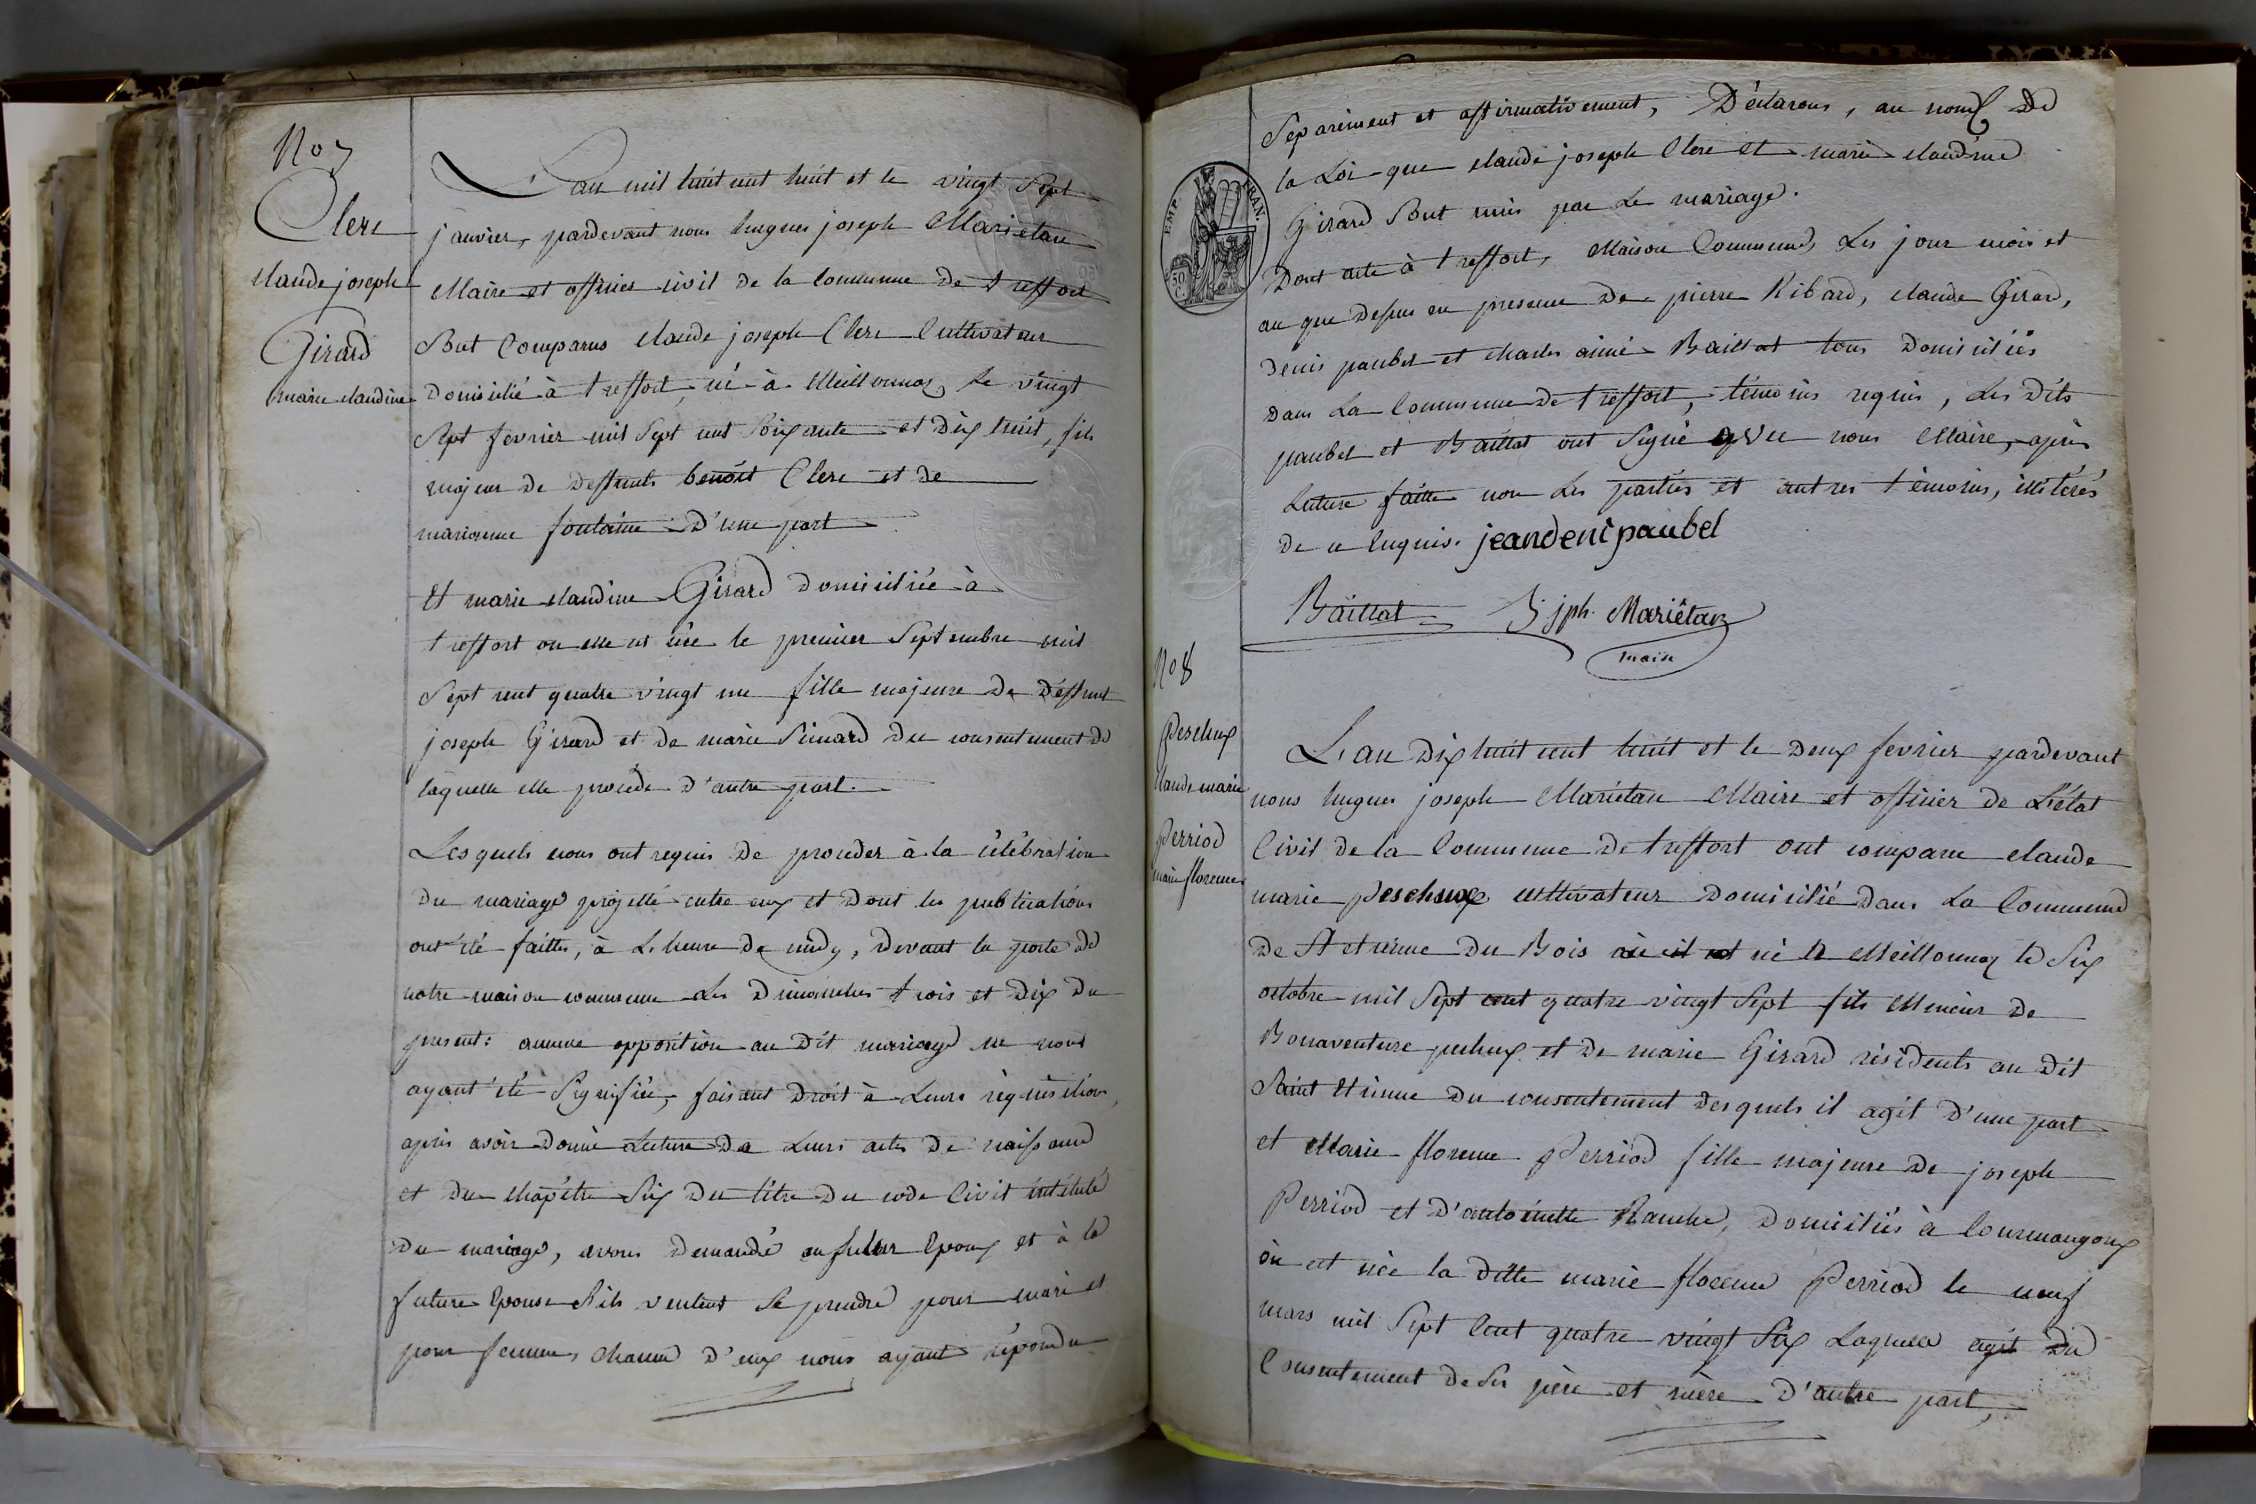 No 7
Clerc
claude joseph
Girard
marie claudine
L'an mil huit cent huit et le vingt Sept
janvier, pardevant nous hugues joseph Mariêtan
Maire et officier civil de la Commune de treffort
Sont Comparus claude joseph Clerc Cultivateur
domicilié à treffort, né à Meillonnaz, le vingt
Sept fevrier mil Sept cent Soixante et dix huit, fils
majeur de deffunts benoit Clerc et de
marianne fontaine d'une part
Et marie claudine Girard domiciliée à
treffort ou elle est née le premier Septembre mil
Sept cent quatre vingt un fille majeure de deffunt
joseph Girard et de marie Simard du consentement de
laquelle elle procéde d'autre part.
Lesquels nous ont requis de proceder à la célébration
du mariage projetté entre eux et dont les publications
ont été faittes, à L'heure de midy, devant la porte de
notre maison commune Les dimanches trois et dix du
present: aucune opposition au dit mariage ne nous
ayant été Signifiée, faisant droit à Leurs réquisitions,
après avoir donné Lecture de Leurs actes de naissance
et du chapître Six du titre du code Civil intitulé
du mariage, avons demandé au futur Epoux et à la
future Epouse S'ils veulent Se prendre pour mari et
pour femme, chacun d'eux nous ayant répondu
Separément et affirmativement, Déclarons, au nom de
la Loi que claude joseph Clerc et marie claudine
Girard Sont unis par Le mariage.
EMP. FRAN.
50 C.
Dont acte à treffort, Maison Commune, Les jour mois et
an que dessus en presence de pierre Ribard, claude Girard,
denis paubel et charles aimé Baillat tous domiciliés
dans La Commune de treffort, témoins requis, Les dits
paubel et Baillat ont Signé avec nous Maire, après
Lecture faitte non Les parties et autres témoins, illitérés
de ce Enquis. jeandenipaubel
Baillat h. jph. Mariêtan
maire
No 8
Peschux
Claude marie
Perriod
marie florence
L'an dix huit cent huit et le deux fevrier pardevant
nous hugues joseph Mariêtan Maire et officier de L'état
Civil de la Commune de treffort ont comparu claude
marie Peschux cultivateur domicilié dans La Commune
de St etienne du Bois né a Meillonnaz le Six
octobre mil Sept cent quatre vingt Sept fils Mineur de
Bonaventure pechux et de marie Girard résidents au dit
Saint Etienne du consentement desquels il agit d'une part
et Marie florence Perriod fille majeure de joseph
Perriod et d'antoinette Ranche, domiciliés à Courmangoux
où est née la ditte marie florence Perriod le neuf
mars mil Sept Cent quatre vingt Six Laquelle agit du
Consentement de Ses père et mère d'autre part,